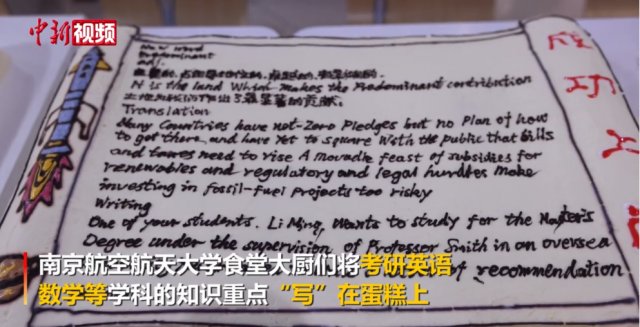 中新视频
New Word
Predominant
adj.
N is the land Which makes the Predominant contribution
Translation
Many Countries have net-Zero Pledges but no Plan of how
to get there and have Yet to square With the public that bills
and taxes need to rise A Movable feast of subsidies for
renewables and regulatory and legal hurdles make
investing in fossil-fuel Projects too risky
Writing
One of your students. Li Ming, Wants to study for the Master's
Degree under the supervision of Professor Smith in an oversea
of recommendation
成功上
南京航空航天大学食堂大厨们将考研英语
数学等学科的知识重点“写”在蛋糕上